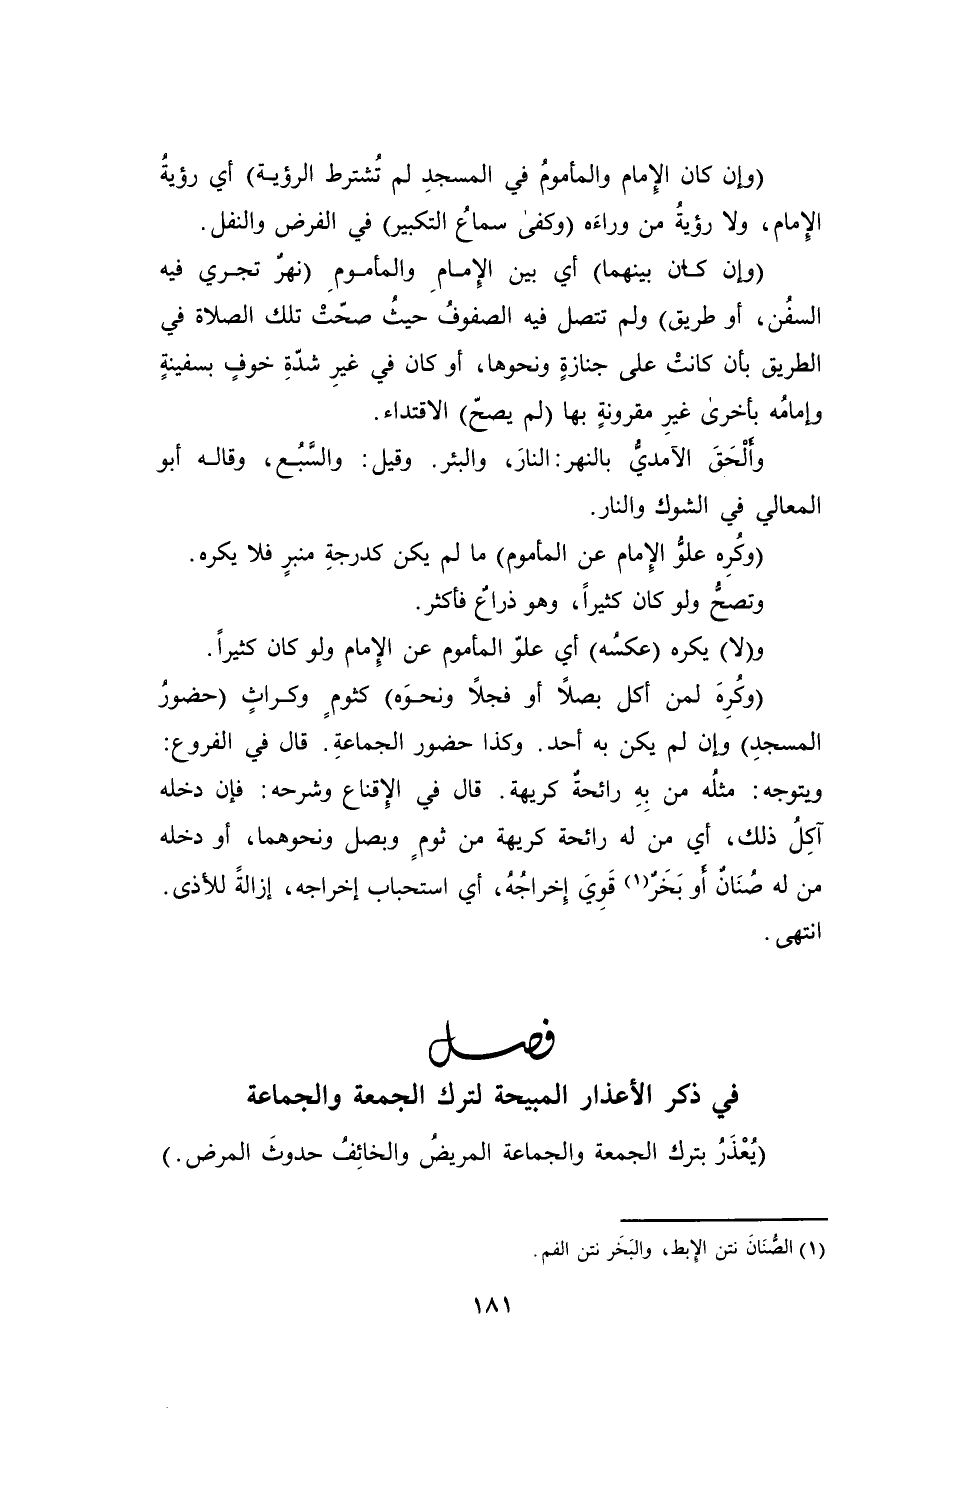 (وإن كان الإمام والمأمومُ في المسجدِ لم تُشترط الرؤيـة) أي رؤيةُ
الإمام، ولا رؤيةُ من وراءَه (وكفىٰ سماعُ التكبير) في الفرض والنفل.
(وإن كـان بينهما) أي بين الإمـامِ والمأمـومِ (نهرٌ تجـري فيه
السفُن، أو طريق) ولم تتصل فيه الصفوفُ حيثُ صحّتْ تلك الصلاة في
الطريق بأن كانتْ على جنازةٍ ونحوها، أو كان في غيرِ شدّةِ خوفٍ بسفينةٍ
وإمامُه بأخرىٰ غيرِ مقرونةٍ بها (لم يصحّ) الاقتداء.
وأَلْحَقَ الآمديُّ بالنهر: النارَ، والبئر. وقيل: والسَّبُـع، وقالـه أبو
المعالي في الشوك والنار.
(وكُرِه علوُّ الإمام عن المأموم) ما لم يكن كدرجةِ منبرٍ فلا يكره.
وتصحُّ ولو كان كثيراً، وهو ذراعٌ فأكثر.
و(لا) يكره (عكسُه) أي علوّ المأموم عن الإمام ولو كان كثيراً.
(وكُرِهَ لمن أكل بصلًا أو فجلًا ونحـوَه) كثومٍ وكـراثٍ (حضورُ
المسجدِ) وإن لم يكن به أحد. وكذا حضور الجماعةِ. قال في الفروع:
ويتوجه: مثلُه من بِهِ رائحةٌ كريهة. قال في الإقناع وشرحه: فإن دخله
آكِلُ ذلك، أي من له رائحة كريهة من ثومٍ وبصل ونحوهما، أو دخله
من له صُنَانٌ أَو بَخَرٌ(١) قَوِيَ إِخراجُهُ، أي استحباب إخراجه، إزالةً للأذى.
انتهى.
فصـل
في ذكر الأعذار المبيحة لترك الجمعة والجماعة
(يُعْذَرُ بترك الجمعة والجماعة المريضُ والخائِفُ حدوثَ المرض.)
(١) الصُّنَانَ نتن الإبط، والبَخَر نتن الفم.
١٨١